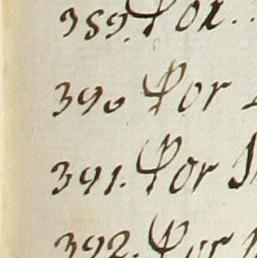 389. Por
390 Por
391. Por
392. Por